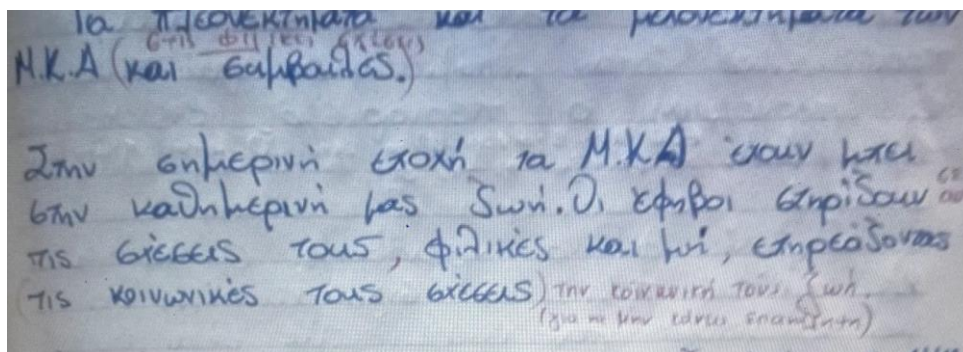 Τα πλεονεκτήματα και τα μειονεκτήματα των
στις φιλικές σχέσεις
Μ.Κ.Α (και συμβουλές.)
Στην σημερινή εποχή τα Μ.Κ.Α έχουν μπει
στην καθημερινή μας ζωή. Οι έφηβοι στηρίζουν
τις σχέσεις τους, φιλικές και μή, επηρεάζοντας
(τις κοινωνικές τους σχέσεις) την κοινωνική τους ζωή.
(για να μην κάνεις επανάληψη)